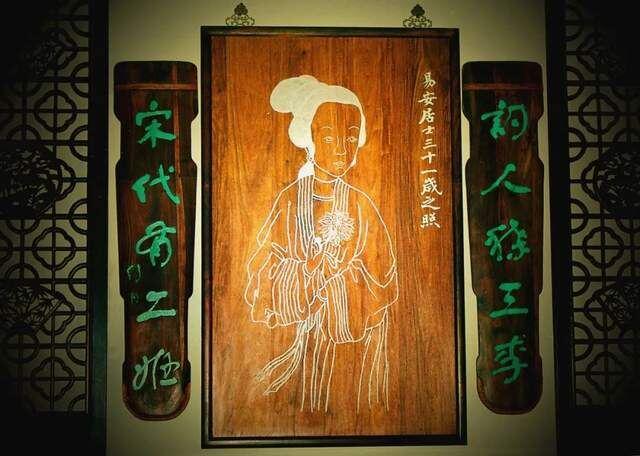 詞人三李
易安居士三十一歲之照
宋代有